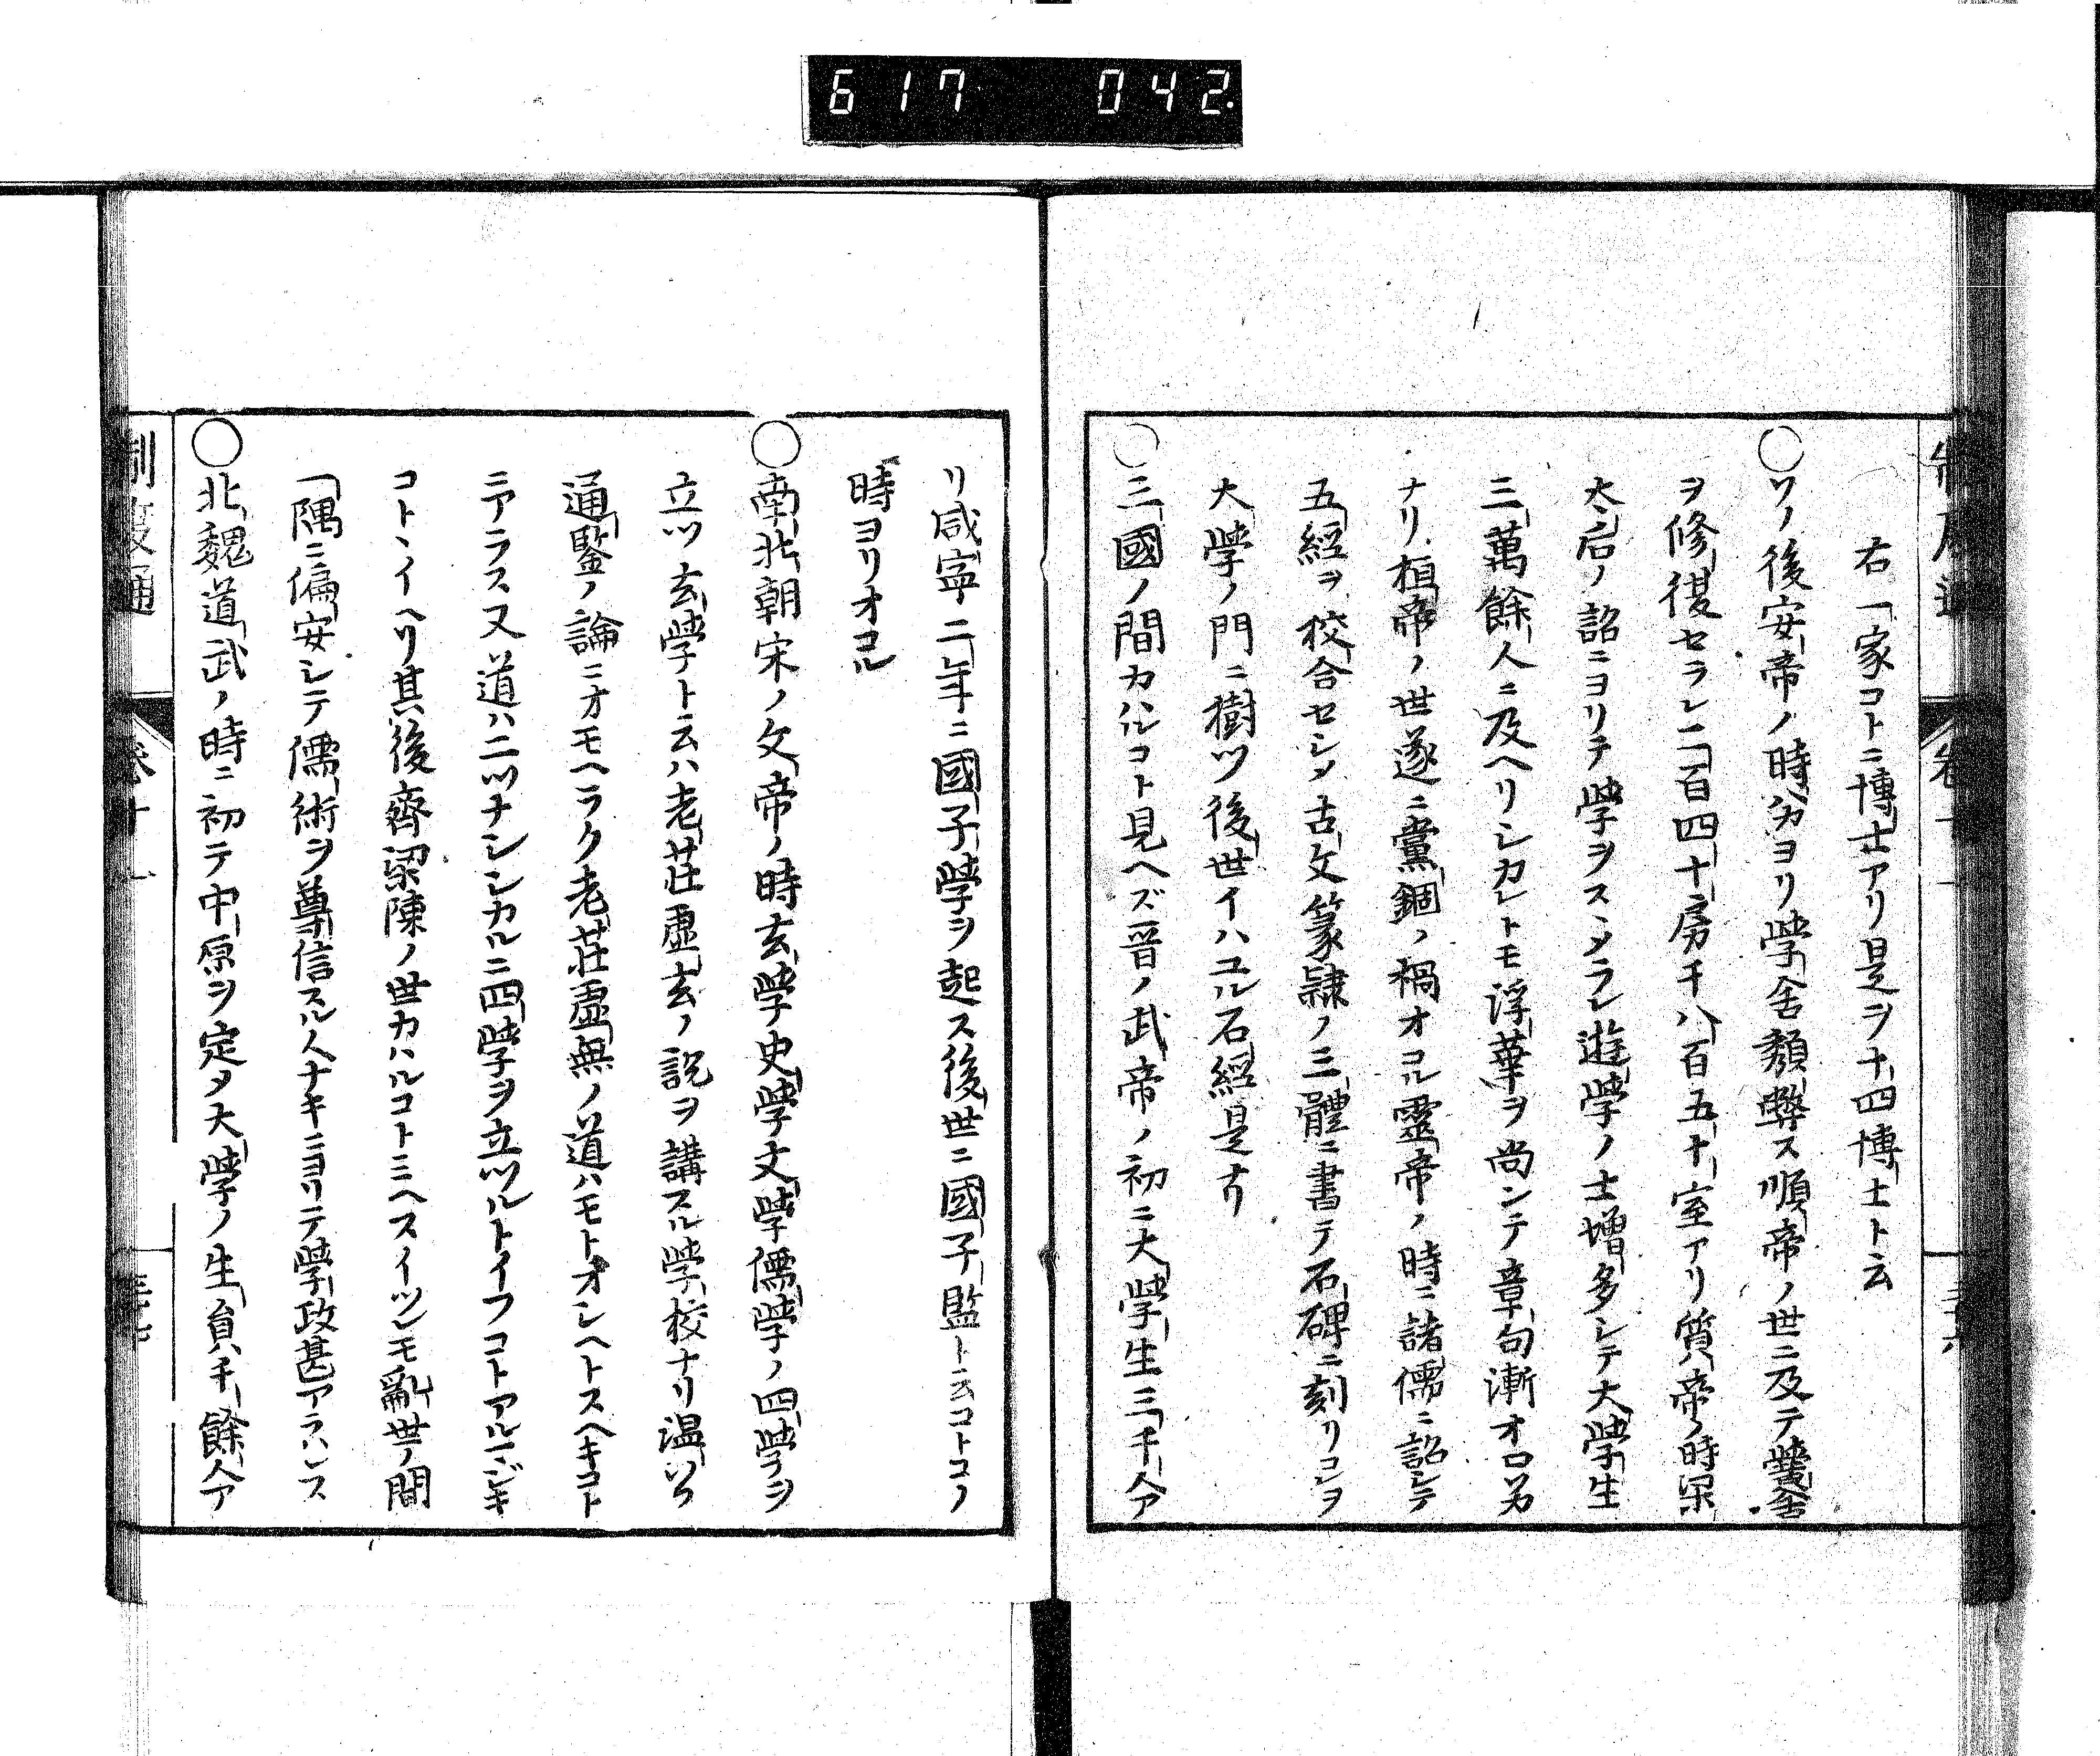 617 042
制度通
卷十一
三十六
右一家コトニ博士アリ是ヲ十四博士ト云
○ソノ後安帝ノ時分ヨリ學舍頽弊ス順帝ノ世ニ及テ黌舍
ヲ修復セラレ二百四十房千八百五十室アリ質帝ノ時梁
太后ノ詔ニヨリテ學ヲスヽメラレ遊學ノ士増多シテ大學生
三萬餘人ニ及ヘリシカレトモ浮華ヲ尚ンテ章句漸オロカ
ナリ桓帝ノ世遂ニ黨錮ノ禍オコル靈帝ノ時ニ諸儒ニ詔シテ
五經ヲ校合セシメ古文篆隷ノ三體ニ書テ石碑ニ刻リコレヲ
大學ノ門ニ樹ツ後世イハユル石經是ナリ
○三國ノ間カハルコト見ヘズ晉ノ武帝ノ初ニ大學生三千人ア
リ咸寧二年ニ國子學ヲ起ス後世ニ國子監ト云コトコノ
時ヨリオコル
○南北朝宋ノ文帝ノ時玄學史學文學儒學ノ四學ヲ
立ツ玄學ト云ハ老莊虚玄ノ説ヲ講スル學校ナリ温公
通鑒ノ論ニオモヘラク老莊虚無ノ道ハモトオシヘトスヘキコト
ニアラス又道ハ二ツナシシカルニ四學ヲ立ツルトイフコトアルマジキ
コトヽイヘリ其後齊梁陳ノ世カハルコトミヘスイツレモ亂世ノ間
一隅ニ偏安シテ儒術ヲ尊信スル人ナキニヨリテ學政甚アラハレス
○北魏道武ノ時ニ初テ中原ヲ定メ大學ノ生員千餘人ア
制度通
卷十一
三十七